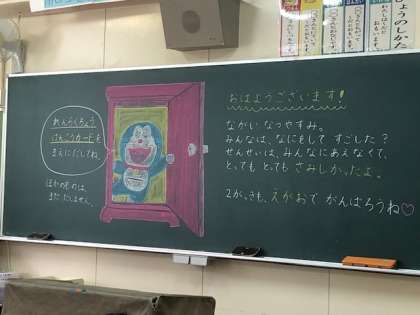 ひょうのしかた
れんらくちょう
けんこうカードを
まえにだしてね。
ほかのものは、
まだだしません。
おはようございます!
ながい なつやすみ。
みんなは、なにをして すごした?
せんせいは、みんなにあえなくて、
とっても とっても さみしかったよ。
2がっきも、えがおで がんばろうね♡